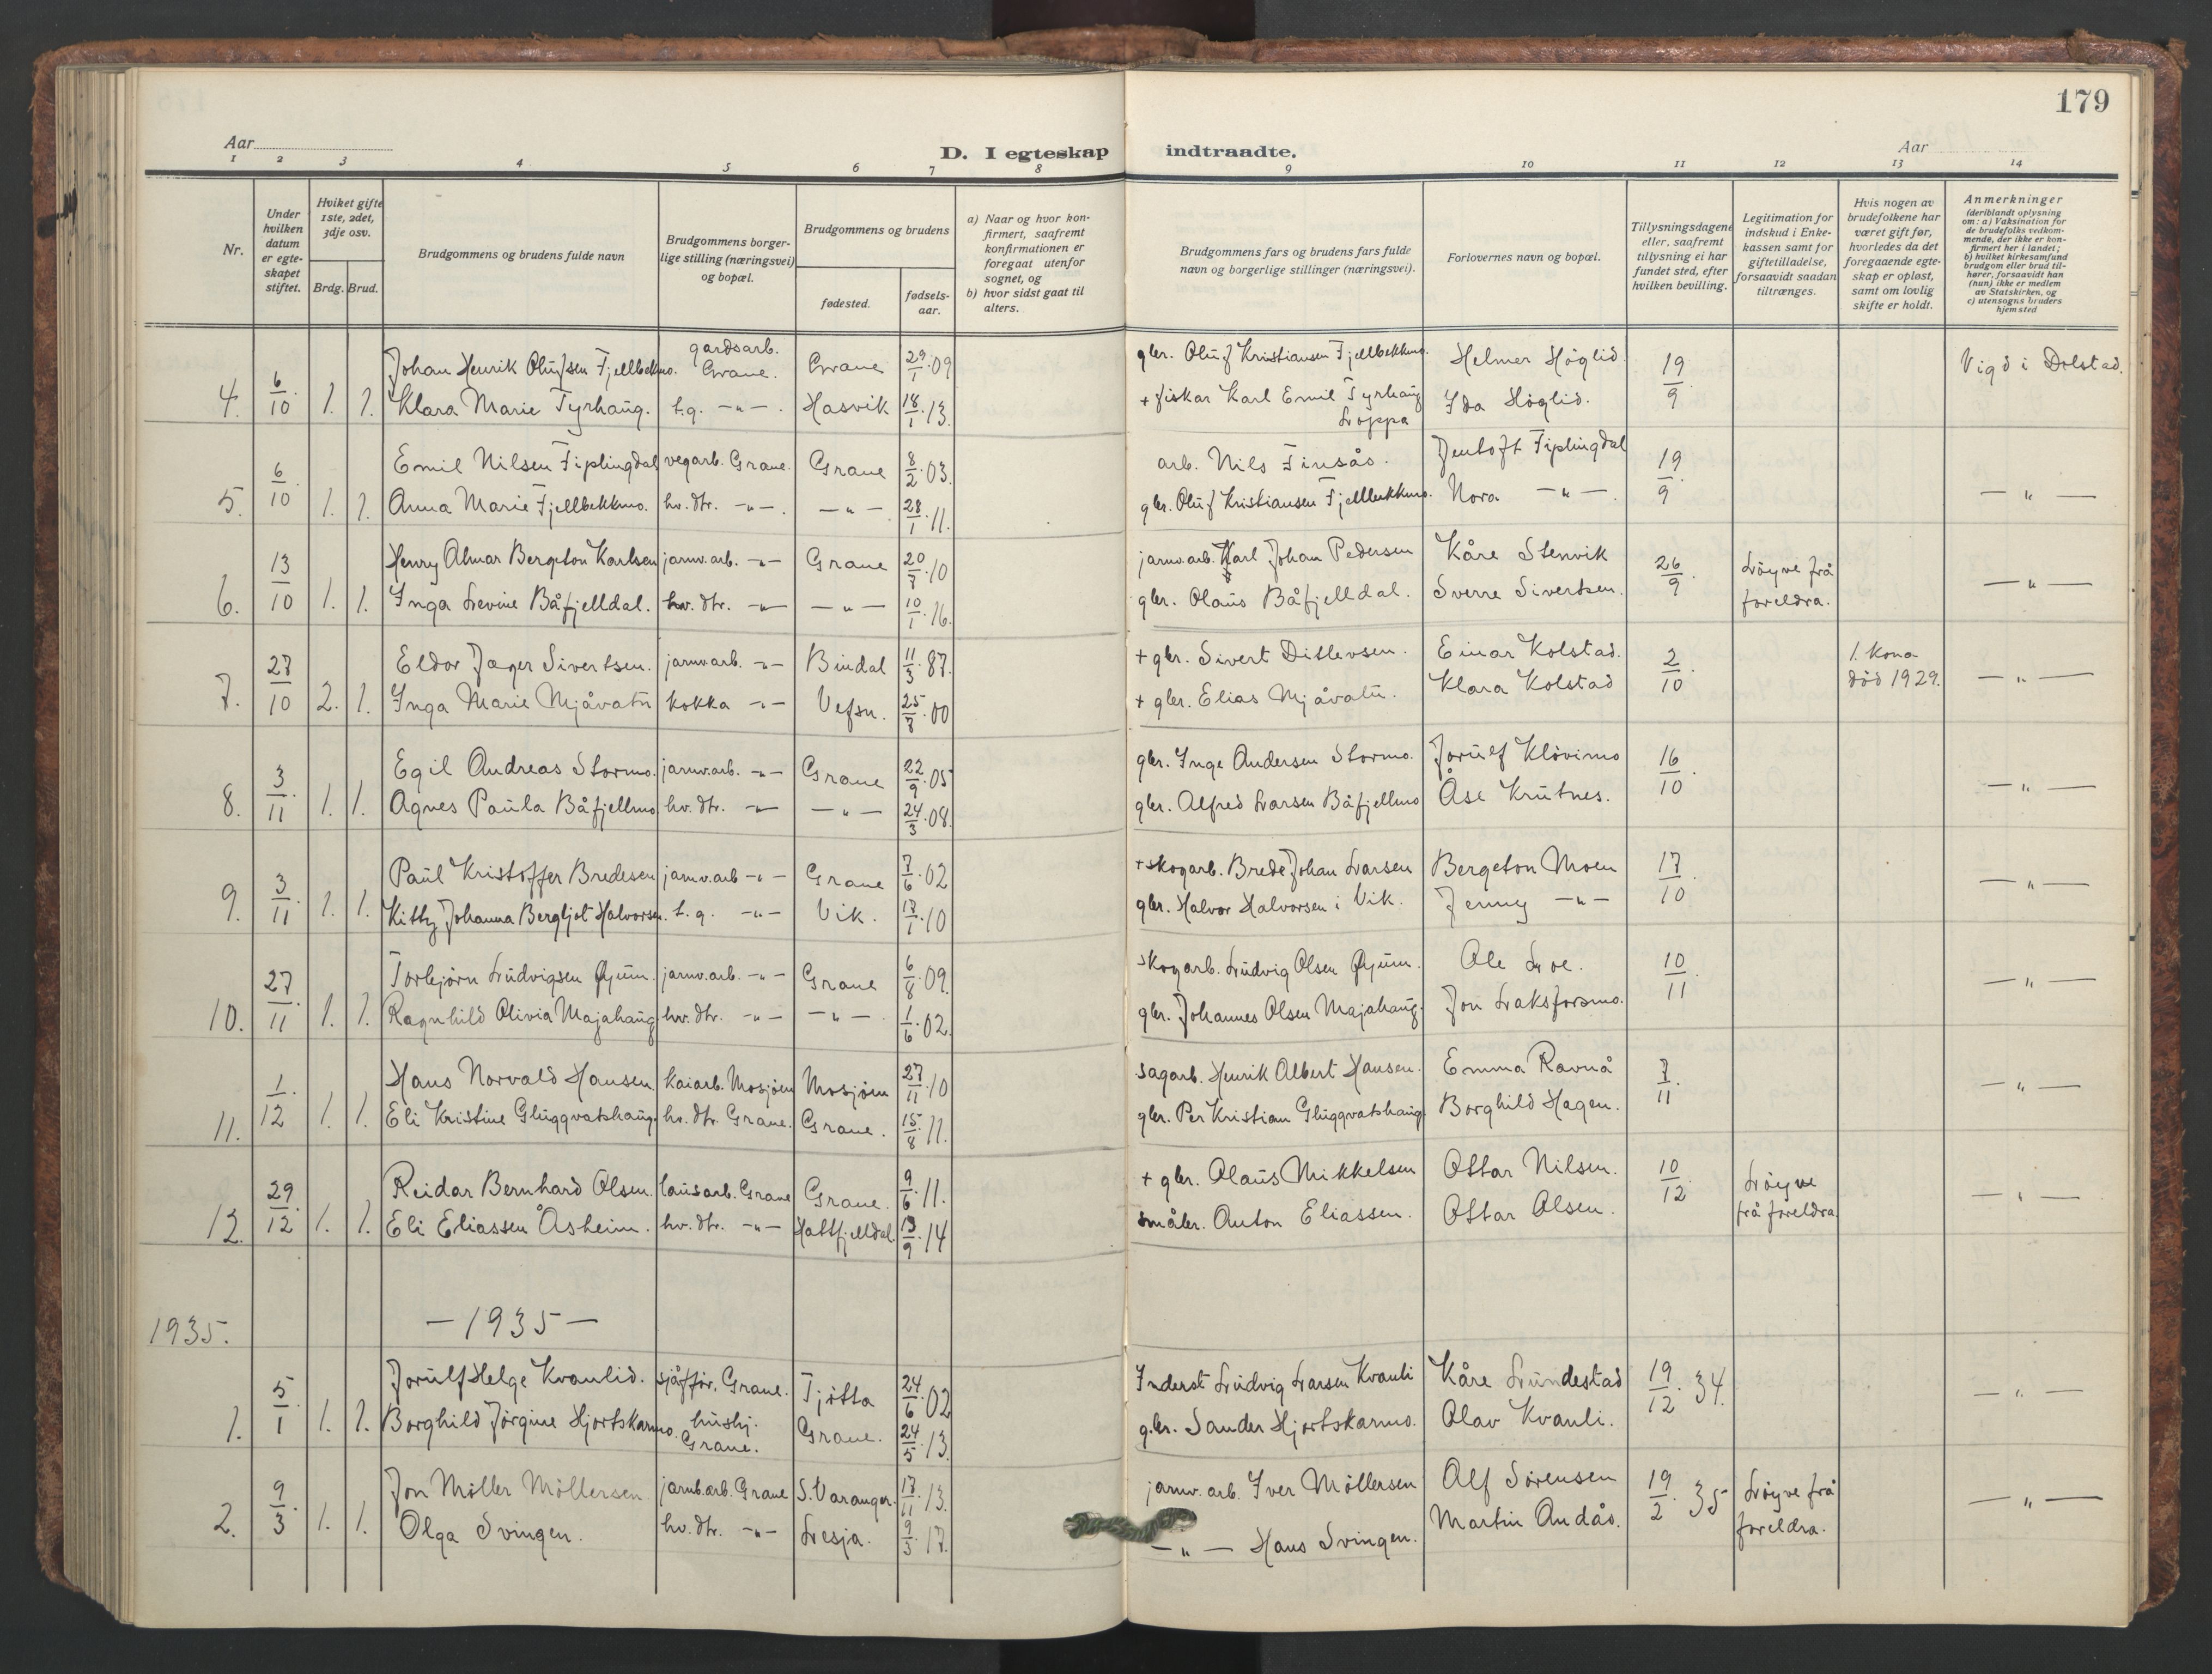 179
Aar
D. I egteskap indtraadte.
Aar
1 2 3 4 5 6 7 8 9 10 11 12 13 14
Nr.
Under hvilken datum er egte-skapet stiftet.
Hviket gifte 1ste, 2det, 3dje osv.
Brdg. Brud.
Brudgommens og brudens fulde navn
Brudgommens borger-lige stilling (næringsvei) og bopæl.
Brudgommens og brudens
fødested.
fødsels-aar.
a) Naar og hvor kon-firmert, saafremt konfirmationen er foregaat utenfor sognet, og
b) hvor sidst gaat til alters.
Brudgommens fars og brudens fars fulde navn og borgerlige stillinger (næringsvei).
Forlovernes navn og bopæl.
Tillysningsdagene eller, saafremt tillysning ei har fundet sted, efter hvilken bevilling.
Legitimation for indskud i Enke-kassen samt for giftetilladelse, forsaavidt saadan tiltrænges.
Hvis nogen av brudefolkene har været gift før, hvorledes da det foregaaende egte-skap er opløst, samt om lovlig skifte er holdt.
Anmerkninger (deriblandt oplysning om: a) Vaksination for de brudefolks vedkom-mende, der ikke er kon-firmert her i landet; b) hvilket kirkesamfund brudgom eller brud til-hører, forsaavidt han (hun) ikke er medlem av Statskirken, og c) utensogns bruders hjemsted
Johan Henrik Olufsen Fjellbekmo. gardsarb. Grane. Grane 29/1.09 gbr. Oluf Kristiansen Fjellbekkmo. Helmer Høglid. 19/9 Vigd i Dolstad.
4. 6/10. 1. 1. Klara Marie Tyrhaug. t.g. -"-. Hasvik 18/1.13. + fiskar Karl Emil Tyrhaug Loppa Ida Høglid.
Emil Nilsen Fiplingdal vegarb. Grane. Grane 8/2.03. arb. Nils Finsås. Jentoft Fiplingdal 19/9.
5. 6/10. 1. 1. Anna Marie Fjellbekkmo. hv. dtr. -"-. -"- 28/1.11. gbr. Oluf Kristiansen Fjellbekkmo. Nora -"-. -"-
Henry Almar Bergeton Karlsen jarnv.arb. -"- Grane 20/7.10 jarnv.arb. Karl Johan Pedersen Kåre Stenvik 26/9. Løyve frå
6. 13/10 1. 1. Inga Levine Båfjelldal. hv. dtr. -"- -"- 10/1.16. gbr. Olaus Båfjelldal. Sverre Sivertsen. foreldra. -"-
Eldor Jæger Sivertsen. jarnv.arb. -"- Bindal 11/3.87. + gbr. Sivert Ditlevsen. Einar Kolstad. 2/10. 1. kona
7. 27/10 2. 1. Inga Marie Mjåvatn kokka -"- Vefsn. 25/7.00 + gbr. Elias Mjåvatn. Klara Kolstad død 1929. -"-
Egil Andreas Stormo. jarnv.arb. -"- Grane 22/9.05 gbr. Inge Andersen Stormo. Jorulf Kløvimo 16/10.
8. 3/11. 1. 1. Agnes Paula Båfjellmo hv. dtr. -"- -"- 24/3.08. gbr. Alfred Larsen Båfjellmo Åse Krutnes. -"-
Paul Kristoffer Bredesen jarnv.arb -"- Grane 7/6.02 + skogarb. Brede Johan Larsen Bergeton Moen 17/10.
9. 3/11. 1. 1. Kitty Johanna Bergljot Halvorsen. t.g. -"- Vik. 17/1.10 gbr. Halvor Halvorsen i Vik. Jenny -"- -"-
Torbjørn Ludvigsen Øyum. jarnv.arb. -"- Grane 6/8.09. skogarb. Ludvig Olsen Øyum. Ole Loe. 10/11
10. 27/11. 1. 1. Ragnhild Olivia Majahaug hv. dtr. -"- -"-. 1/6.02. gbr. Johannes Olsen Majahaug. Jon Laksforsmo. -"-
Hans Norvald Hansen. kaiarb. Mosjøen Mosjøen 27/11.10 sagarb. Henrik Albert Hansen. Emma Ravnå 7/11.
11. 1/12. 1. 1. Eli Kristine Gluggvatshaug. hv. dtr. Grane. Grane. 15/8.11. gbr. Per Kristian Gluggvatshaug. Borghild Hagen. -"-
Reidar Bernhard Olsen. lausarb. Grane Grane. 9/6.11. + gbr. Olaus Mikkelsen Ottar Nilsen. 10/12 Løyve
12. 29/12. 1. 1. Eli Eliassen Åsheim. hv. dtr. -"- Hattfjelldal. 13/9.14 småbr. Anton Eliassen. Ottar Olsen. frå foreldra. -"-
1935. -1935-
Jorulf Helge Kvanlid. sjåfför, Grane. Tjøtta 24/6.02 Inderst Ludvig Larsen Kvanli Kåre Lundestad 19/12.34.
1. 5/1. 1. 1. Borghild Jørgine Hjortskarmo. hushj. Grane. Grane. 24/5.13. gbr. Sander Hjortskarmo. Olav Kvanli. -"-
Jon Møller Möllersen jarnb.arb. Grane S. Varanger. 17/11.13. jarnv. arb. Iver Møllersen Alf Sørensen 19/2.35 Løyve frå
2. 9/3. 1. 1. Olga Svingen. hv. dtr. -"- Lesja. 9/5.17. -"- Hans Svingen. Martin Andås. foreldra. -"-